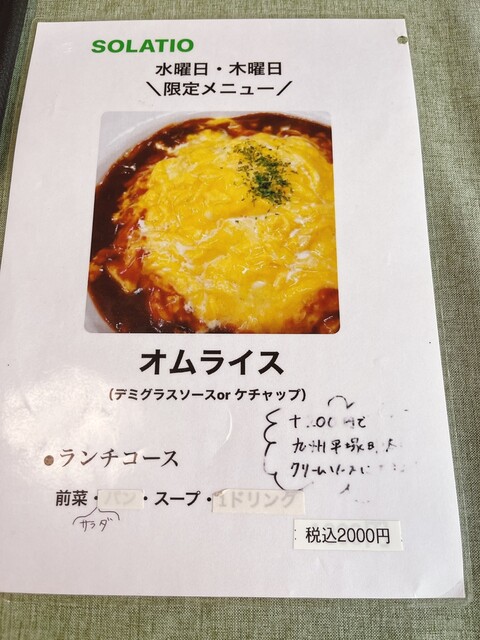 SOLATIO
水曜日・木曜日
＼限定メニュー／
オムライス
（デミグラスソースor ケチャップ）
で
九州
クリームソースに
●ランチコース
前菜・パン・スープ・1ドリンク
サラダ
税込2000円